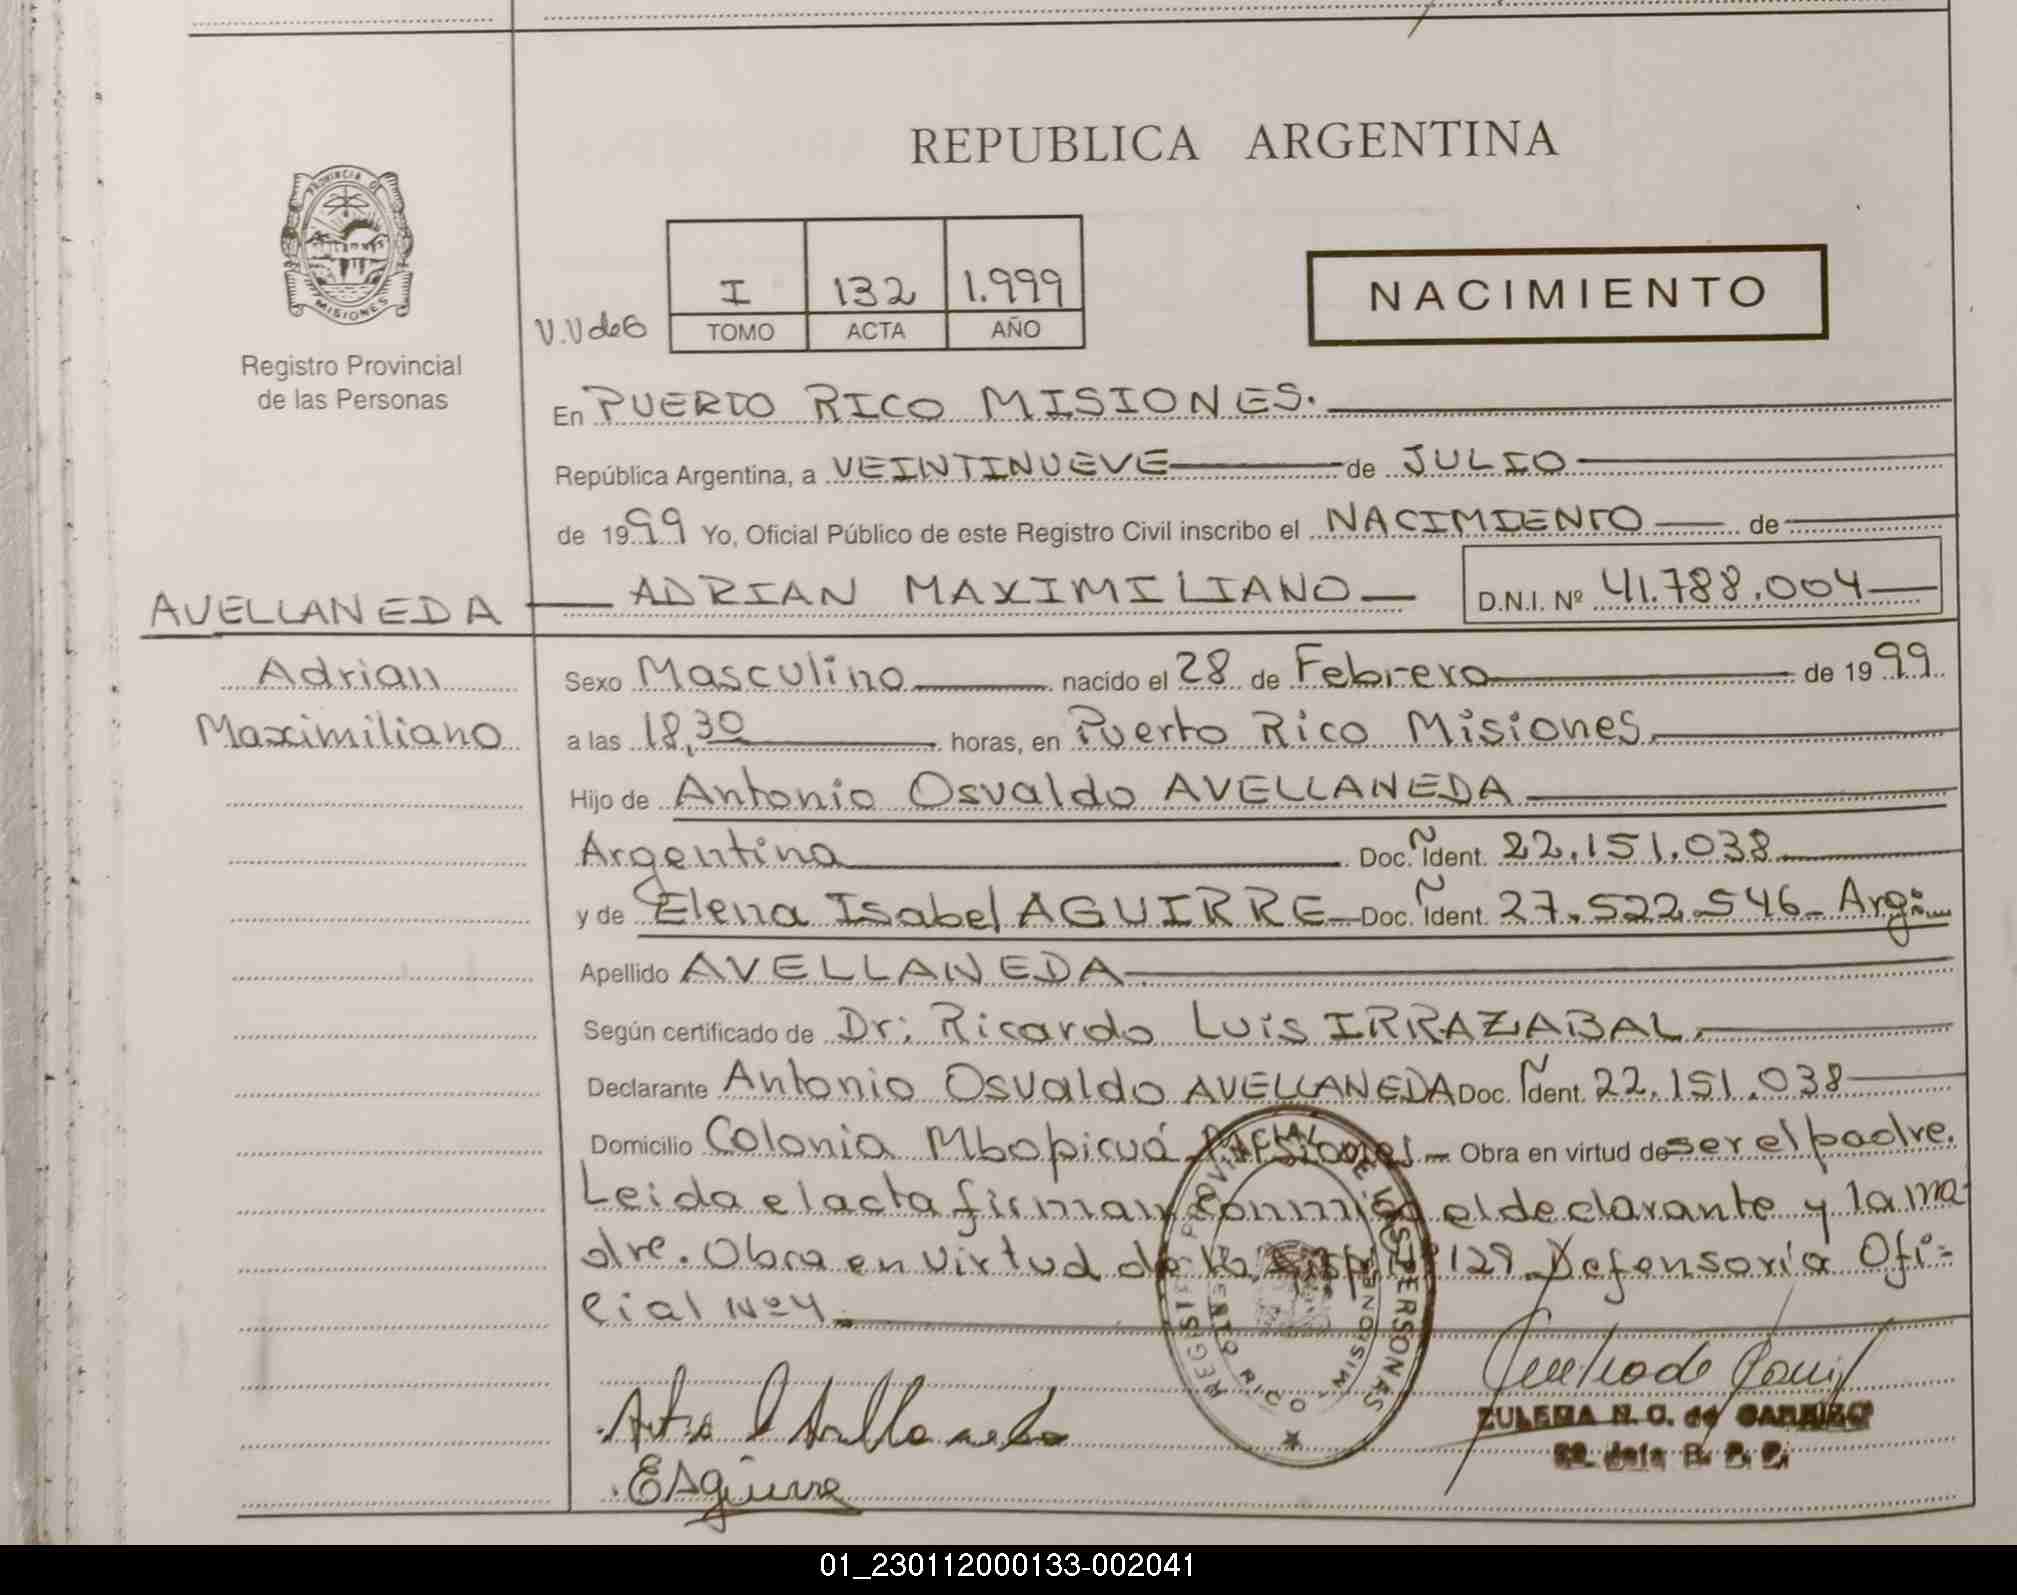 REPUBLICA ARGENTINA
PROVINCIA DE
MISIONES
Registro Provincial
de las Personas
V.V de G
I 132 1.999
TOMO ACTA AÑO
NACIMIENTO
En PUERTO RICO MISIONES.
República Argentina, a VEINTINUEVE de JULIO
de 1999 Yo, Oficial Público de este Registro Civil inscribo el NACIMIENTO de
AVELLANEDA ADRIAN MAXIMILIANO D.N.I. Nº 41.788.004
Adrian
Maximiliano
Sexo Masculino nacido el 28 de Febrero de 1999
a las 18,30 horas, en Puerto Rico Misiones.
Hijo de Antonio Osvaldo AVELLANEDA
Argentino Doc. Ident. 22.151.038
y de Elena Isabel AGUIRRE Doc. Ident. 27.522.546 Arg:
Apellido AVELLANEDA
Según certificado de Dr: Ricardo Luis IRRAZABAL.
Declarante Antonio Osvaldo AVELLANEDA Doc. Ident. 22.151.038
Domicilio Colonia Mbopicuá Misiones Obra en virtud de ser el padre.
Leida el acta firman conmigo el declarante y la ma-
dre. Obra en virtud de la 129 Defensoría Ofi=
cial Nº 4.
REGIST. PROVINCIAL DE LAS PERSONAS
RICO MISIONES
E Aguirre
ZULEMA N. O. de
01_230112000133-002041